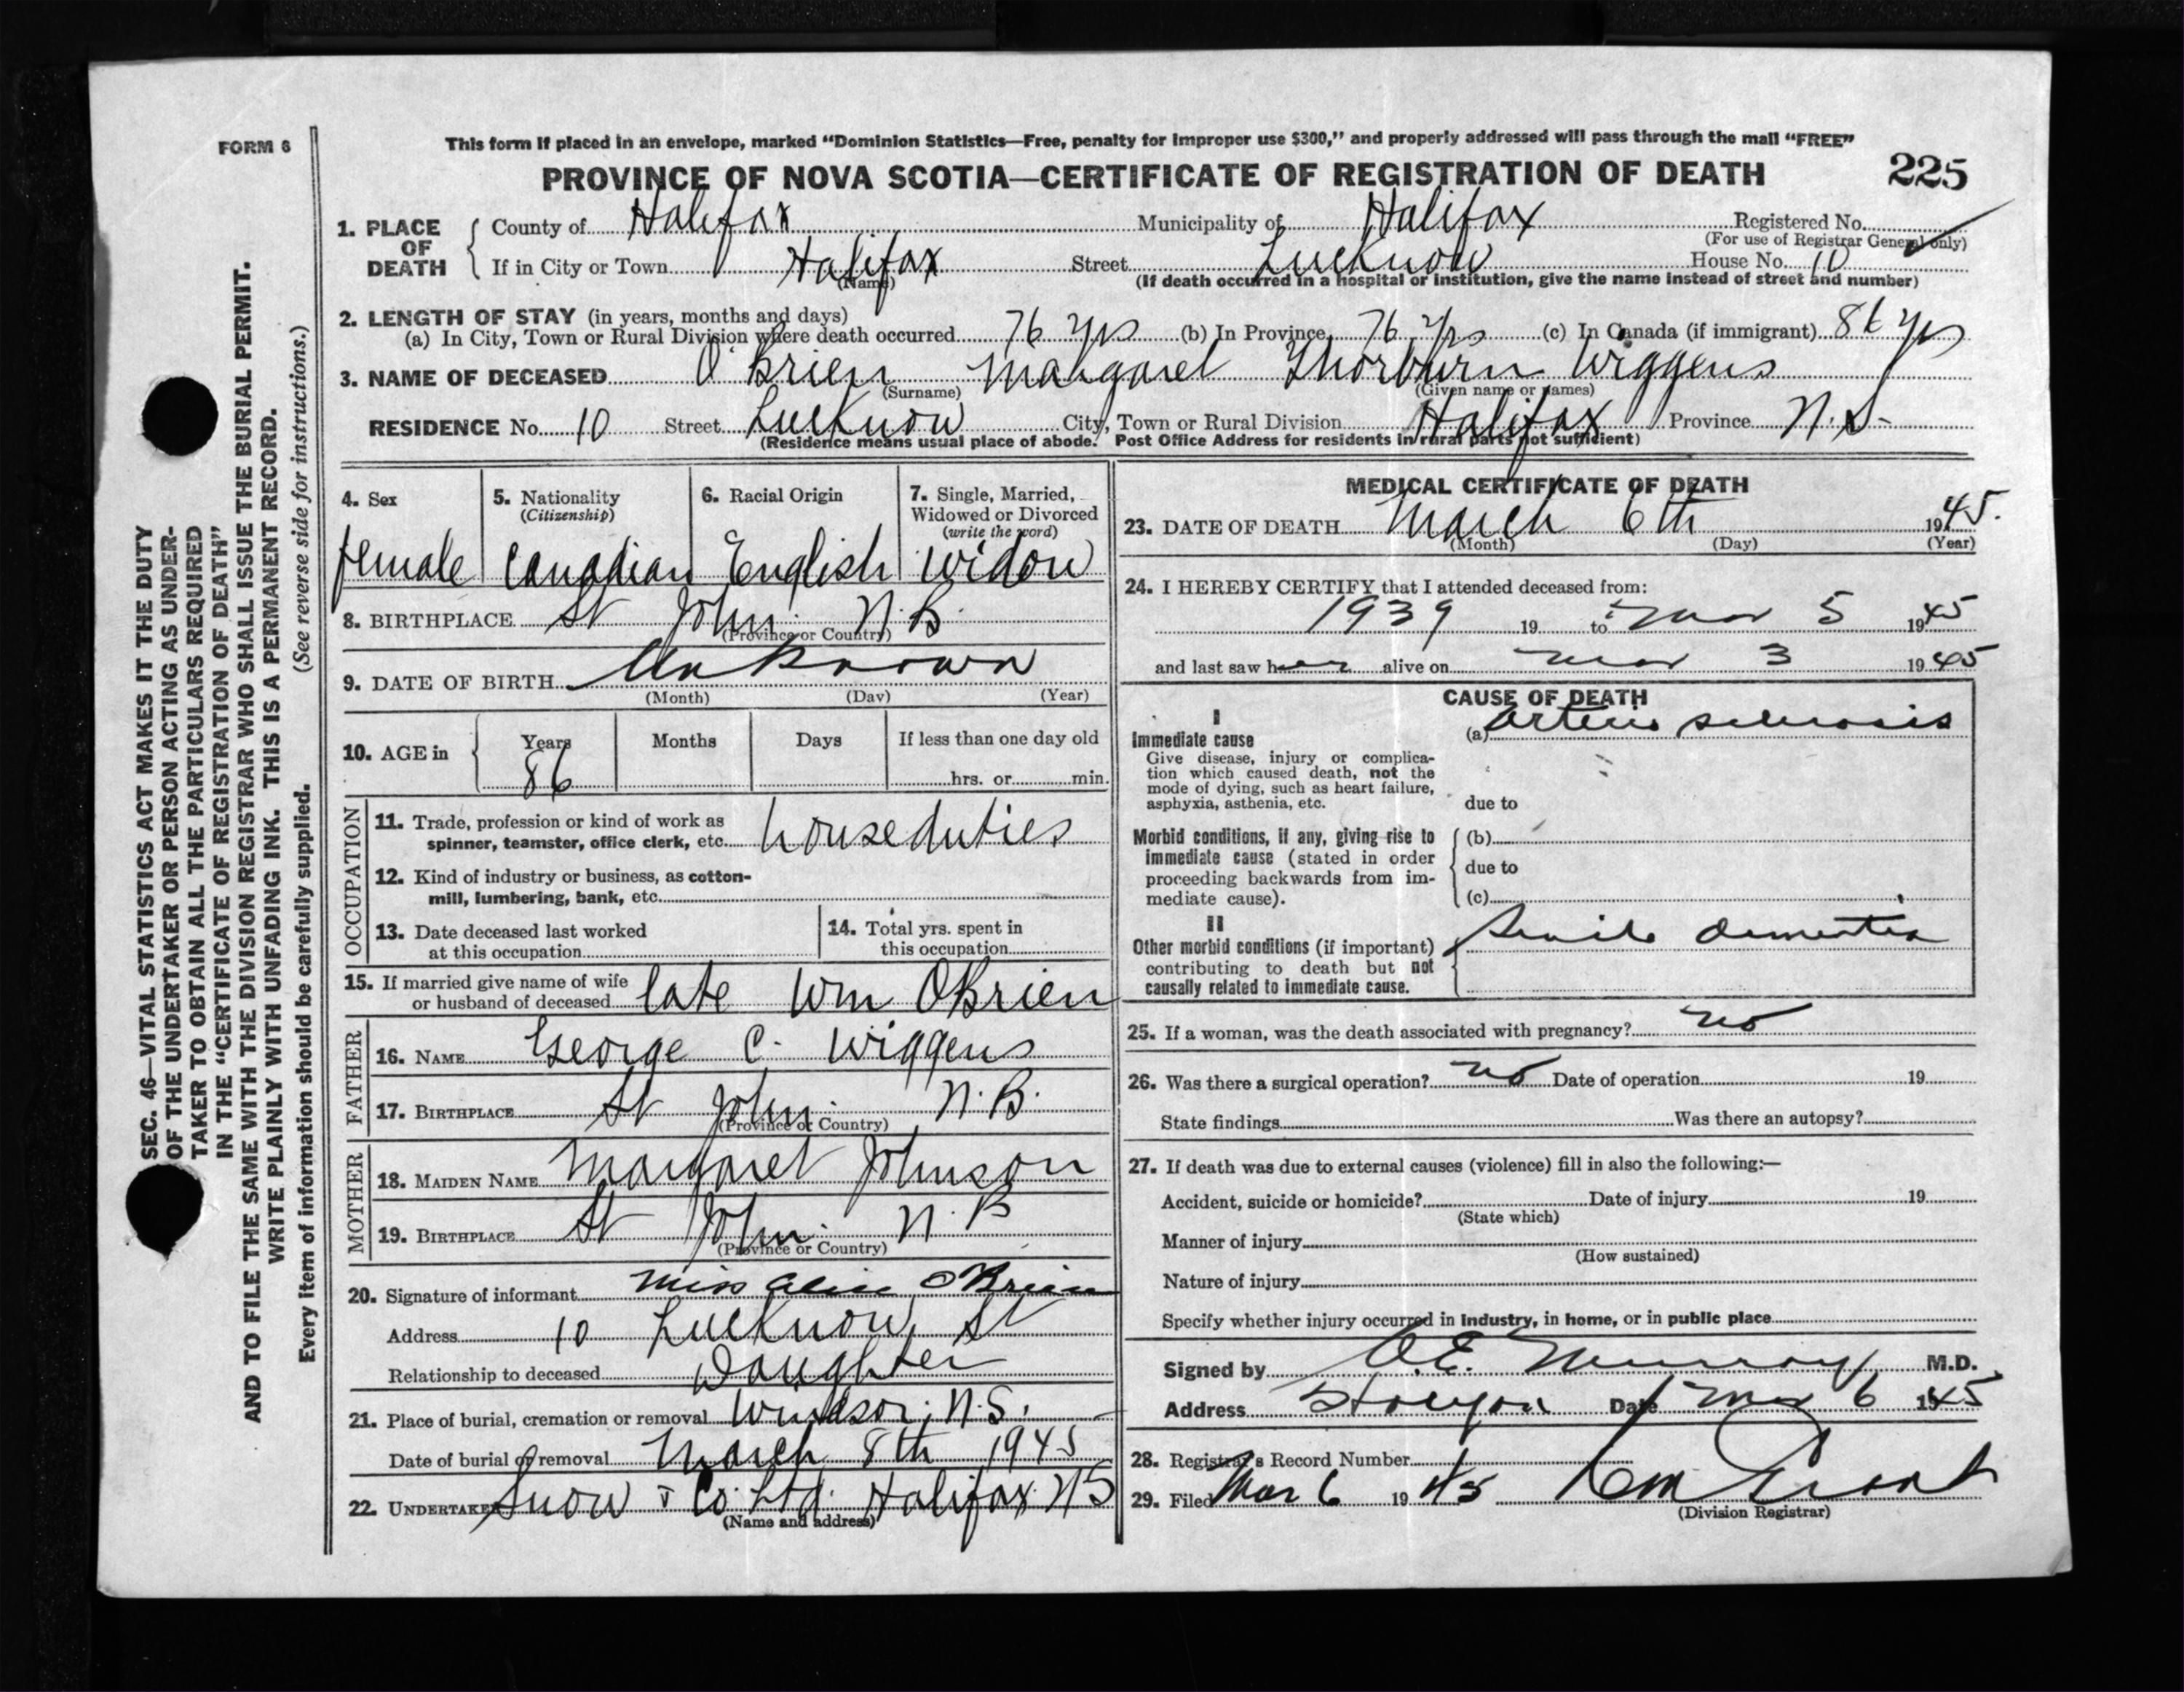 FORM 6
This form if placed in an envelope, marked “Dominion Statistics—Free, penalty for improper use $300,” and properly addressed will pass through the mail “FREE”
PROVINCE OF NOVA SCOTIA—CERTIFICATE OF REGISTRATION OF DEATH 225
1. PLACE OF DEATH County of Halifax Municipality of Halifax Registered No.
(For use of Registrar General only)
If in City or Town Halifax Street Lucknow House No. 10
(Name) (If death occurred in a hospital or institution, give the name instead of street and number)
2. LENGTH OF STAY (in years, months and days)
(a) In City, Town or Rural Division where death occurred 76 yrs (b) In Province 76 yrs (c) In Canada (if immigrant) 86 yrs
3. NAME OF DECEASED O'Brien Margaret Thorburn Wiggens
(Surname) (Given name or names)
RESIDENCE No. 10 Street Lucknow City, Town or Rural Division Halifax Province N.S.
(Residence means usual place of abode. Post Office Address for residents in rural parts not sufficient)
4. Sex 5. Nationality 6. Racial Origin 7. Single, Married,
(Citizenship) Widowed or Divorced
(write the word)
female Canadian English Widow
8. BIRTHPLACE St John N.B.
(Province or Country)
9. DATE OF BIRTH Unknown
(Month) (Day) (Year)
10. AGE in Years Months Days If less than one day old
86 hrs. or min.
OCCUPATION
11. Trade, profession or kind of work as
spinner, teamster, office clerk, etc. house duties
12. Kind of industry or business, as cotton-
mill, lumbering, bank, etc.
13. Date deceased last worked 14. Total yrs. spent in
at this occupation this occupation
15. If married give name of wife
or husband of deceased late Wm OBrien
FATHER
16. NAME George C. Wiggens
17. BIRTHPLACE St John N.B.
(Province or Country)
MOTHER
18. MAIDEN NAME Margaret Johnson
19. BIRTHPLACE St John N.B
(Province or Country)
20. Signature of informant Miss Alice O'Brien
Address 10 Lucknow St
Relationship to deceased Daughter
21. Place of burial, cremation or removal Windsor, N.S.
Date of burial or removal March 8th 1945
22. UNDERTAKER Snow & Co. Ltd. Halifax NS
(Name and address)
MEDICAL CERTIFICATE OF DEATH
23. DATE OF DEATH March 6th 1945.
(Month) (Day) (Year)
24. I HEREBY CERTIFY that I attended deceased from:
1939 19 to Mar 5 1945
and last saw her alive on Mar 3 1945
CAUSE OF DEATH
I
Immediate cause (a) arterio sclerosis
Give disease, injury or complica-
tion which caused death, not the
mode of dying, such as heart failure,
asphyxia, asthenia, etc. due to
Morbid conditions, if any, giving rise to (b)
immediate cause (stated in order due to
proceeding backwards from im-
mediate cause). (c)
II
Other morbid conditions (if important) Senile dementia
contributing to death but not
causally related to immediate cause.
25. If a woman, was the death associated with pregnancy? no
26. Was there a surgical operation? no Date of operation 19
State findings Was there an autopsy?
27. If death was due to external causes (violence) fill in also the following:—
Accident, suicide or homicide? Date of injury 19
(State which)
Manner of injury
(How sustained)
Nature of injury
Specify whether injury occurred in industry, in home, or in public place
Signed by Murray M.D.
Address Date Mar 6 1945
28. Registrar's Record Number
29. Filed Mar 6 1945
(Division Registrar)
SEC. 46—VITAL STATISTICS ACT MAKES IT THE DUTY
OF THE UNDERTAKER OR PERSON ACTING AS UNDER-
TAKER TO OBTAIN ALL THE PARTICULARS REQUIRED
IN THE “CERTIFICATE OF REGISTRATION OF DEATH”
AND TO FILE THE SAME WITH THE DIVISION REGISTRAR WHO SHALL ISSUE THE BURIAL PERMIT.
WRITE PLAINLY WITH UNFADING INK. THIS IS A PERMANENT RECORD.
Every item of information should be carefully supplied. (See reverse side for instructions.)